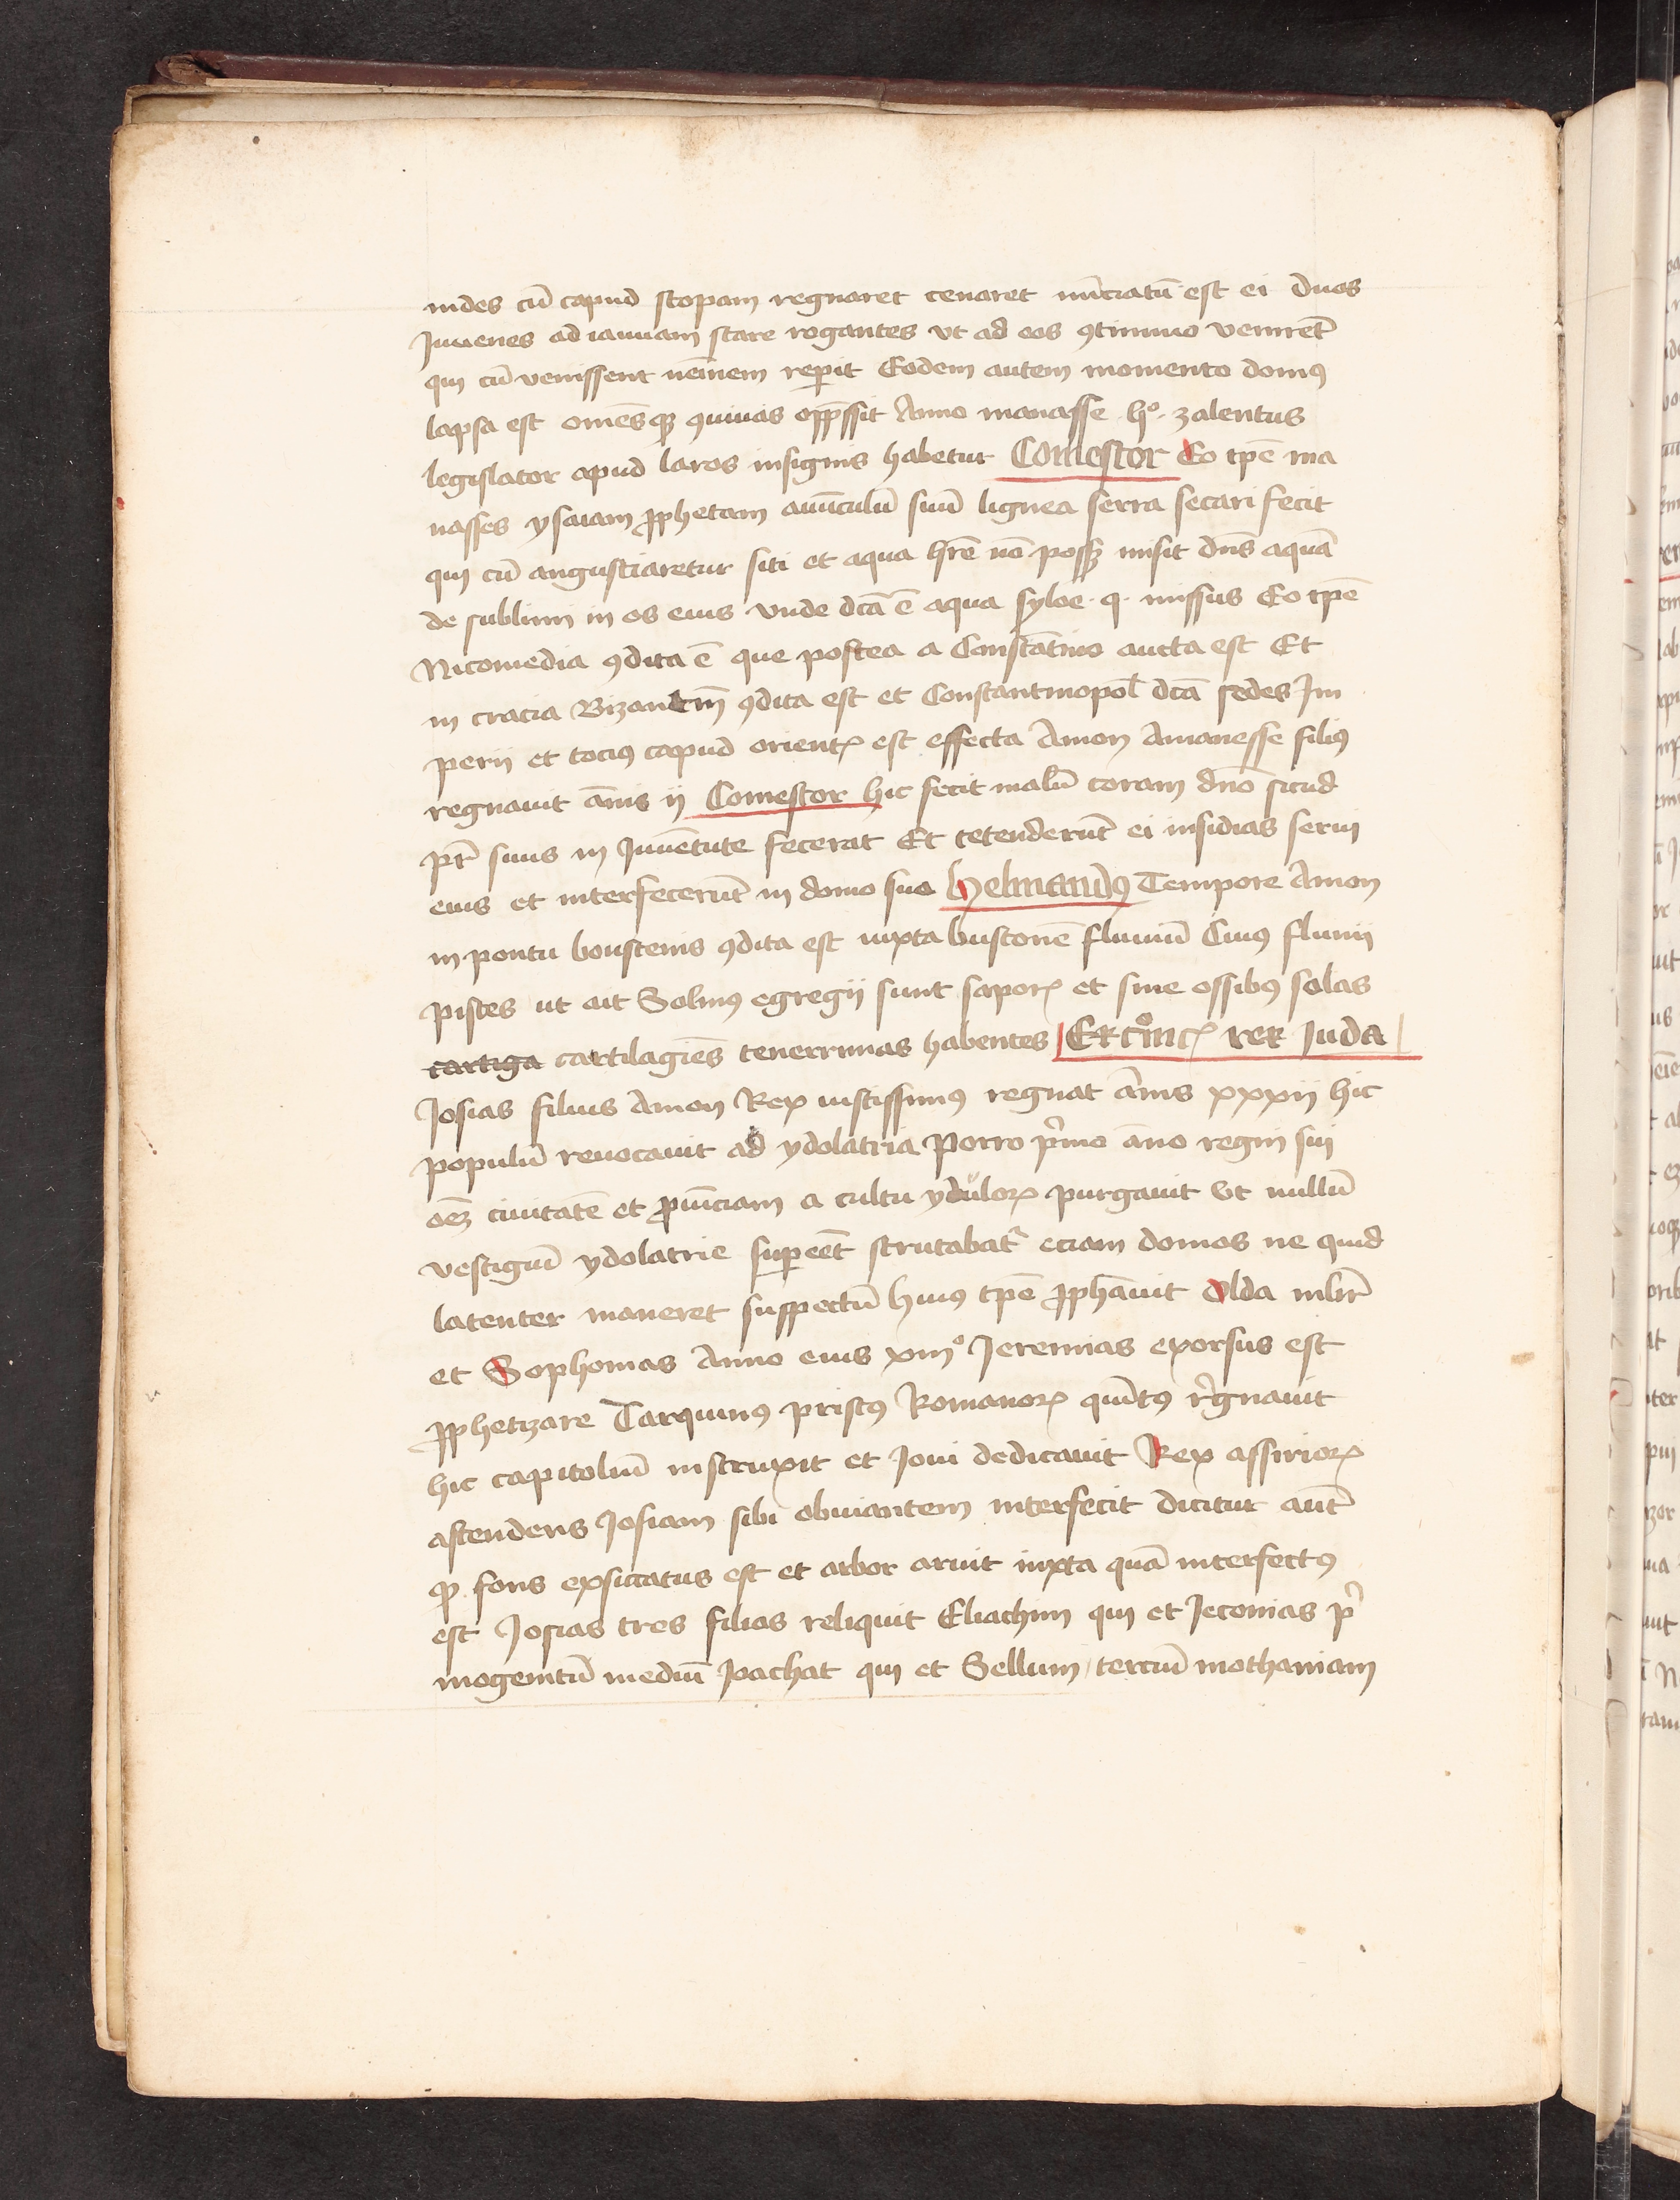 nides cū capud scopam regnaret cenaret nūciatū est ei duos
Iuuenes ad ianuam stare rogantes vt ad eos ꝯtinuo venirēt
qui cū venissent neīnem reperit Eodem autem momento domꝰ
lapsa est omēsqꝫ ꝯuiuas opp̄ssit Anno manasse hº· zalentus
legislator apud laros insignis habetur Comestor Eo tp̄e ma
nasses ysaiam ꝓphetam auūculū suū lignea serra secari fecit
qui cū angustiaretur siti et aqua hr̄e nō possꝫ misit dn̄s aquā
de sublimi in os eius vnde dc̄a ē aqua syloe · q · missus Eo tp̄e
Nicomedia ꝯdita ē que postea a Constātino aucta est Et
in tracia Bizantiū ꝯdita est et Constantinopol̄ dc̄a sedes Im
perij et tociꝰ capud orientꝭ est effecta Amon Amanesse filiꝰ
regnauit ānis ij Comestor hic fecit malū coram dn̄o sicud
pr̄ suus in Iuuētute fecerat Et tetenderūt ei insidias serui
eius et interfecerūt in domo sua Helmandꝰ Tempore Amon
in pontu boustenis ꝯdita est iuxta bustonē fluuiū Cuiꝰ fluuij
pisces ut ait Solinꝰ egregij sunt saporꝭ et sine ossibꝰ solas
cartiga cartilagiēs tenerrimas habentes
Iosias filius Amon Rex iustissimꝰ regnat ānis xxxij hic
populū reuocauit ad ydolatria Porro pͥmo āno regni sui
oēꝫ ciuitatē et ꝓuīciam a cultu ydulorꝝ purgauit Vt nullū
vestigiū ydolatrie supeēt scrutabatᷣ eciam domos ne quid
latenter maneret suspectū huiꝰ tp̄e ꝓphāuit Olda mlr̄
et Sophonias Anno eius xiiiº Ieremias exorsus est
ꝓphetizare Tarquinꝰ priscꝰ Romanorꝝ quītꝰ rͥgnauit
hic capitoliū instruxit et Ioui dedicauit Rex assiriorꝝ
ascendens Iosiam sibi obuiantem interfecit dicitur aut̄
ꝙ fons exsiccatus est et arbor aruit iuxta quā interfectꝰ
est Iosias tres filios reliquit Eliachim qui et Ieconias pͥ
mogenitū mediū Ioachat qui et Sellum / terciū mathaniam